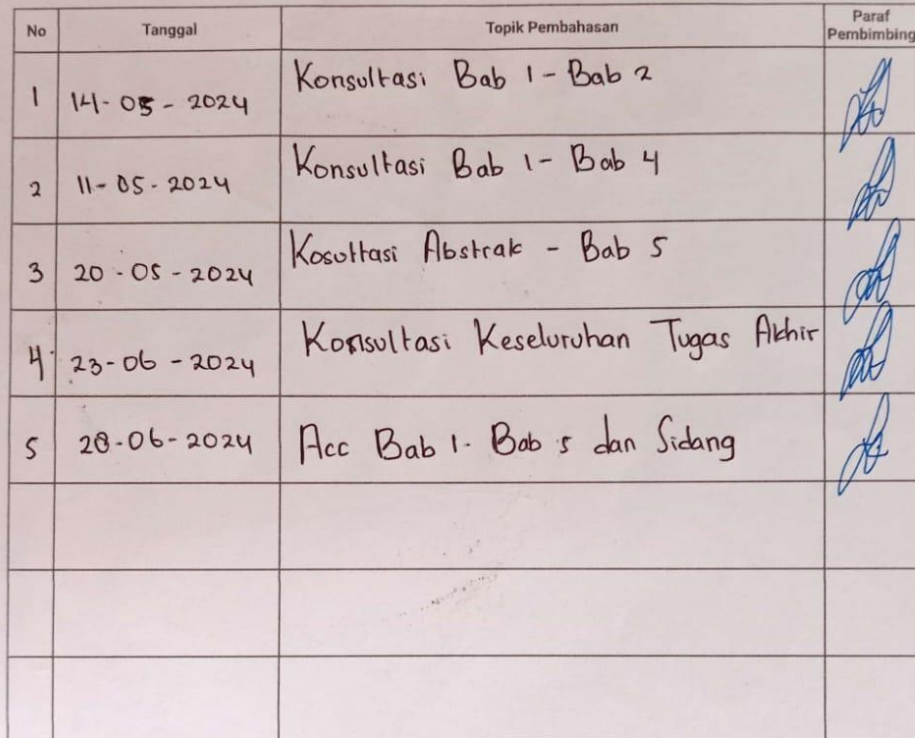 No Tanggal Topik Pembahasan Paraf Pembimbing
1 14-05-2024 Konsultasi Bab 1-Bab 2
2 11-05-2024 Konsultasi Bab 1- Bab 4
3 20-05-2024 Kosultasi Abstrak - Bab 5
4 23-06-2024 Konsultasi Keseluruhan Tugas Akhir
5 28-06-2024 Acc Bab 1- Bab 5 dan Sidang